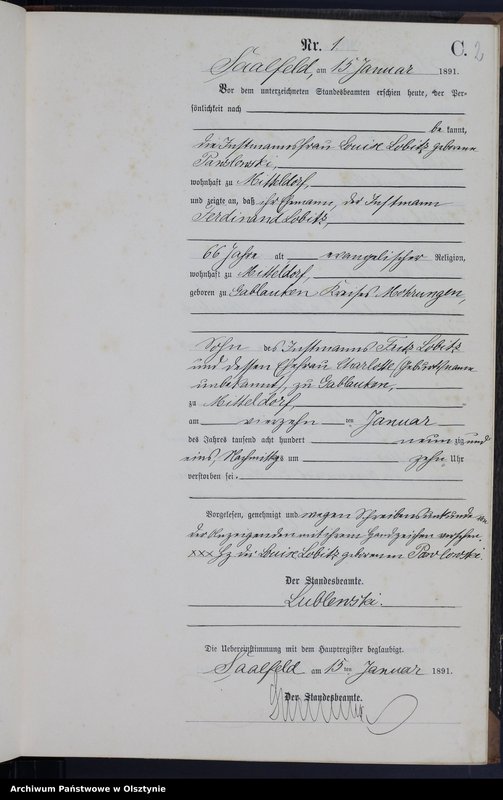 Nr. 1
C. 2
Saalfeld, am 15 Januar 1891.
Vor dem unterzeichneten Standesbeamten erschien heute, der Per-
sönlichkeit nach
be kannt,
die Instmannsfrau Louise Lobitz geborene
Pawlowski,
wohnhaft zu Mitteldorf,
und zeigte an, daß ihr Ehemann, der Instmann
Ferdinand Lobitz,
66 Jahre alt evangelischer Religion,
wohnhaft zu Mitteldorf,
geboren zu Gablauken Kreises Mohrungen,
Sohn des Instmanns Fritz Lobitz
und dessen Ehefrau Charlotte, Geburtsname
unbekannt, zu Gablauken,
zu Mitteldorf,
am vierzehn ten Januar
des Jahres tausend acht hundert neun zig und
eins, Nachmittags um zehn Uhr
verstorben sei.
Vorgelesen, genehmigt und wegen Schreibensunkunde
der Anzeigenden mit ihrem Handzeichen versehen.
xxx Hz der Louise Lobitz geborenen Pawlowski
Der Standesbeamte.
Lublewski.
Die Uebereinstimmung mit dem Hauptregister beglaubigt.
Saalfeld am 15 ten Januar 1891.
Der Standesbeamte.
Archiwum Państwowe w Olsztynie